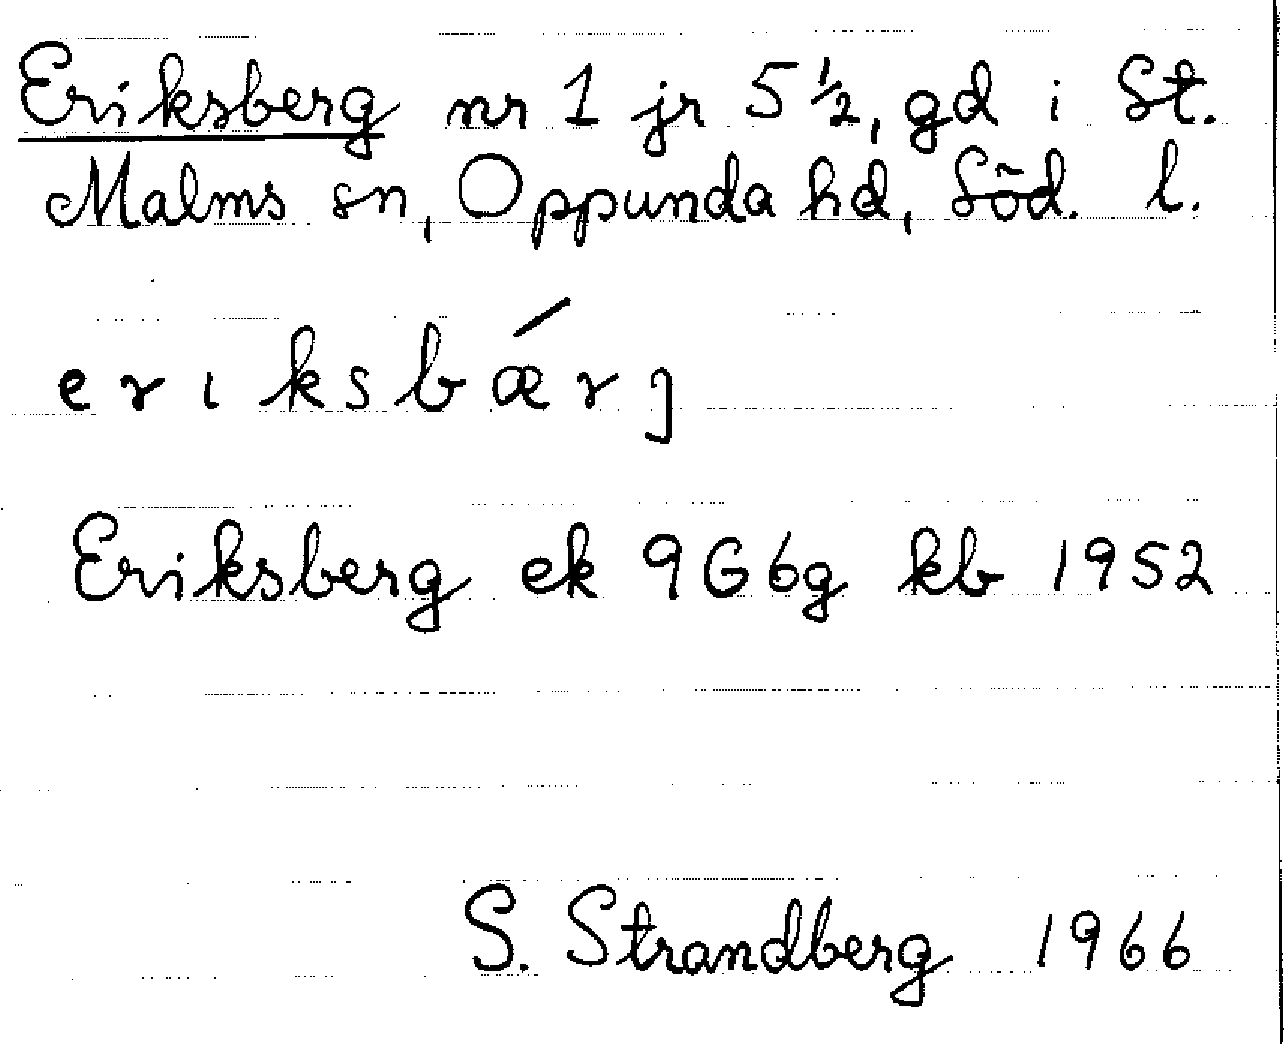 Eriksberg nr 1 jr 5 1/2, gd i St.
Malms sn, Oppunda hd, Söd. l.
eriksbǽrj
Eriksberg ek 9G6g kb 1952
S. Strandberg 1966